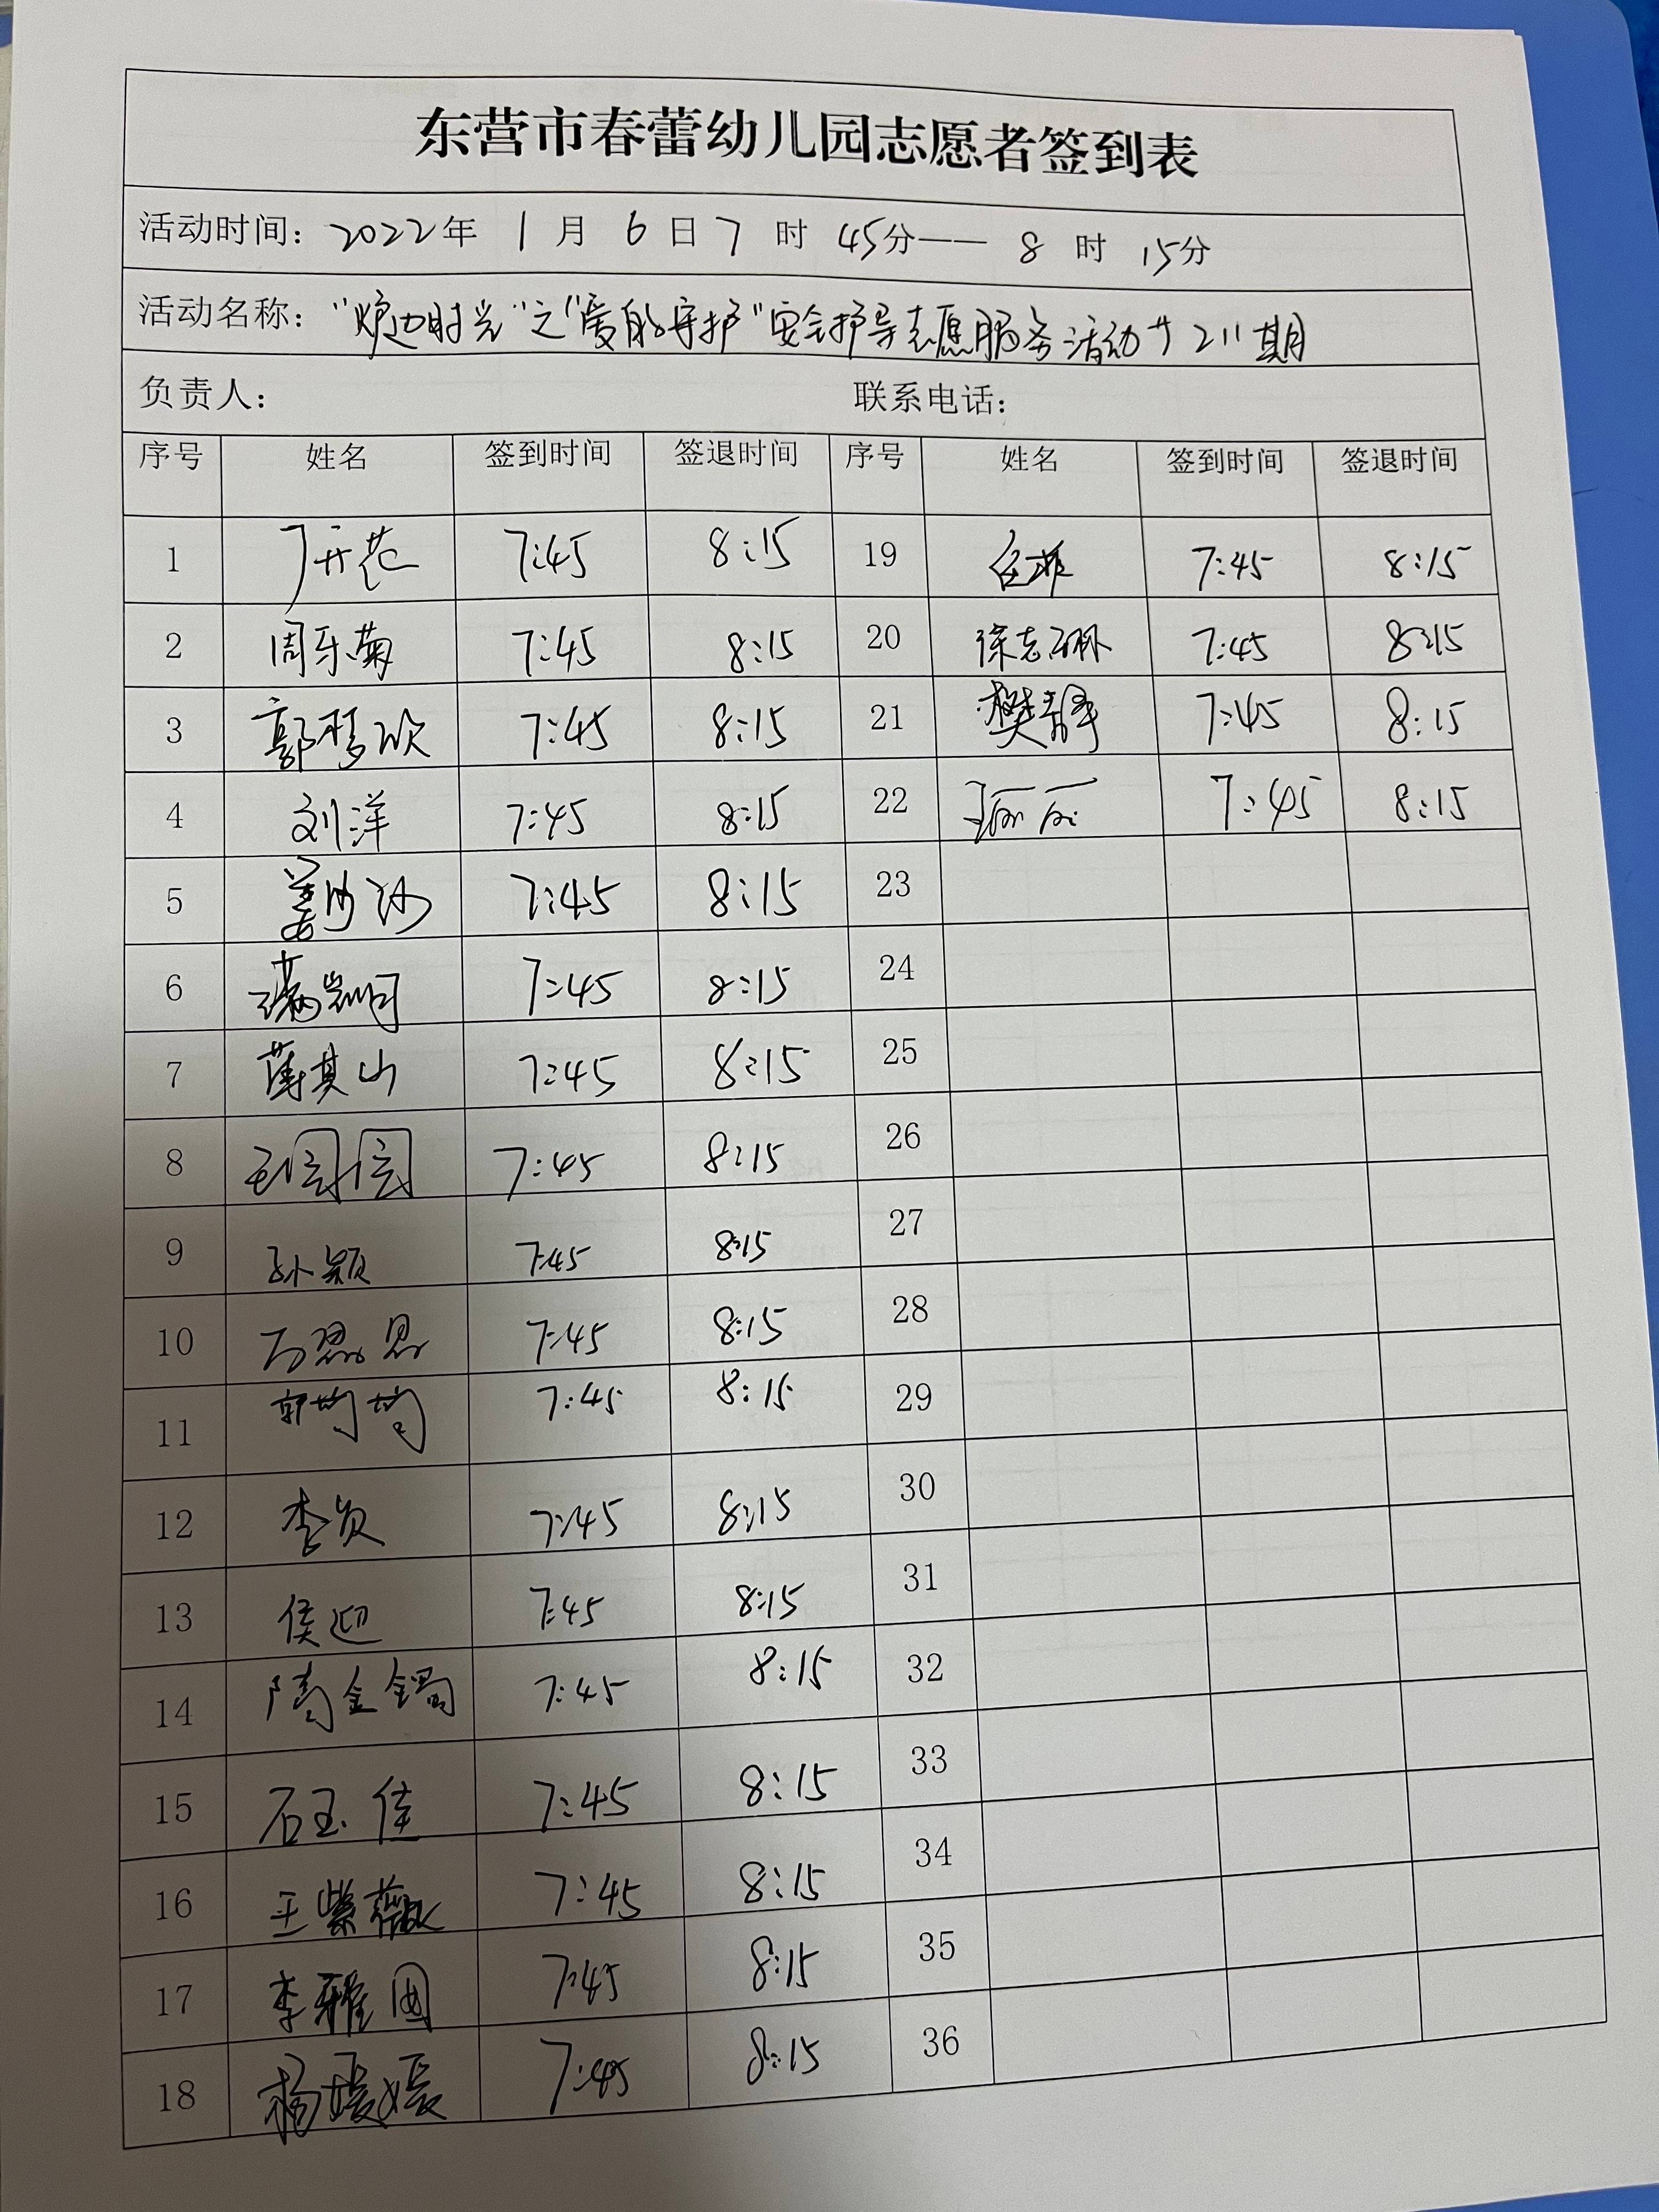 东营市春蕾幼儿园志愿者签到表
活动时间：2022年 1月 6日7时 45分——8时 15分
活动名称："炉边时光"之"爱的守护"安全护导志愿服务活动 211期
负责人： 联系电话：
序号 姓名 签到时间 签退时间 序号 姓名 签到时间 签退时间
1 丁开花 7:45 8:15 19 7:45 8:15
2 周乐菊 7:45 8:15 20 徐志 7:45 8:15
3 郭梦欣 7:45 8:15 21 樊静 7:45 8:15
4 刘洋 7:45 8:15 22 7:45 8:15
5 姜沙沙 7:45 8:15 23
6 7:45 8:15 24
7 薄其山 7:45 8:15 25
8 王园园 7:45 8:15 26
9 孙颖 7:45 8:15 27
10 7:45 8:15 28
11 郭均均 7:45 8:15 29
12 李贞 7:45 8:15 30
13 侯迎 7:45 8:15 31
14 隋金镯 7:45 8:15 32
15 石玉佳 7:45 8:15 33
16 王紫薇 7:45 8:15 34
17 李雅囡 7:45 8:15 35
18 杨媛媛 7:45 8:15 36